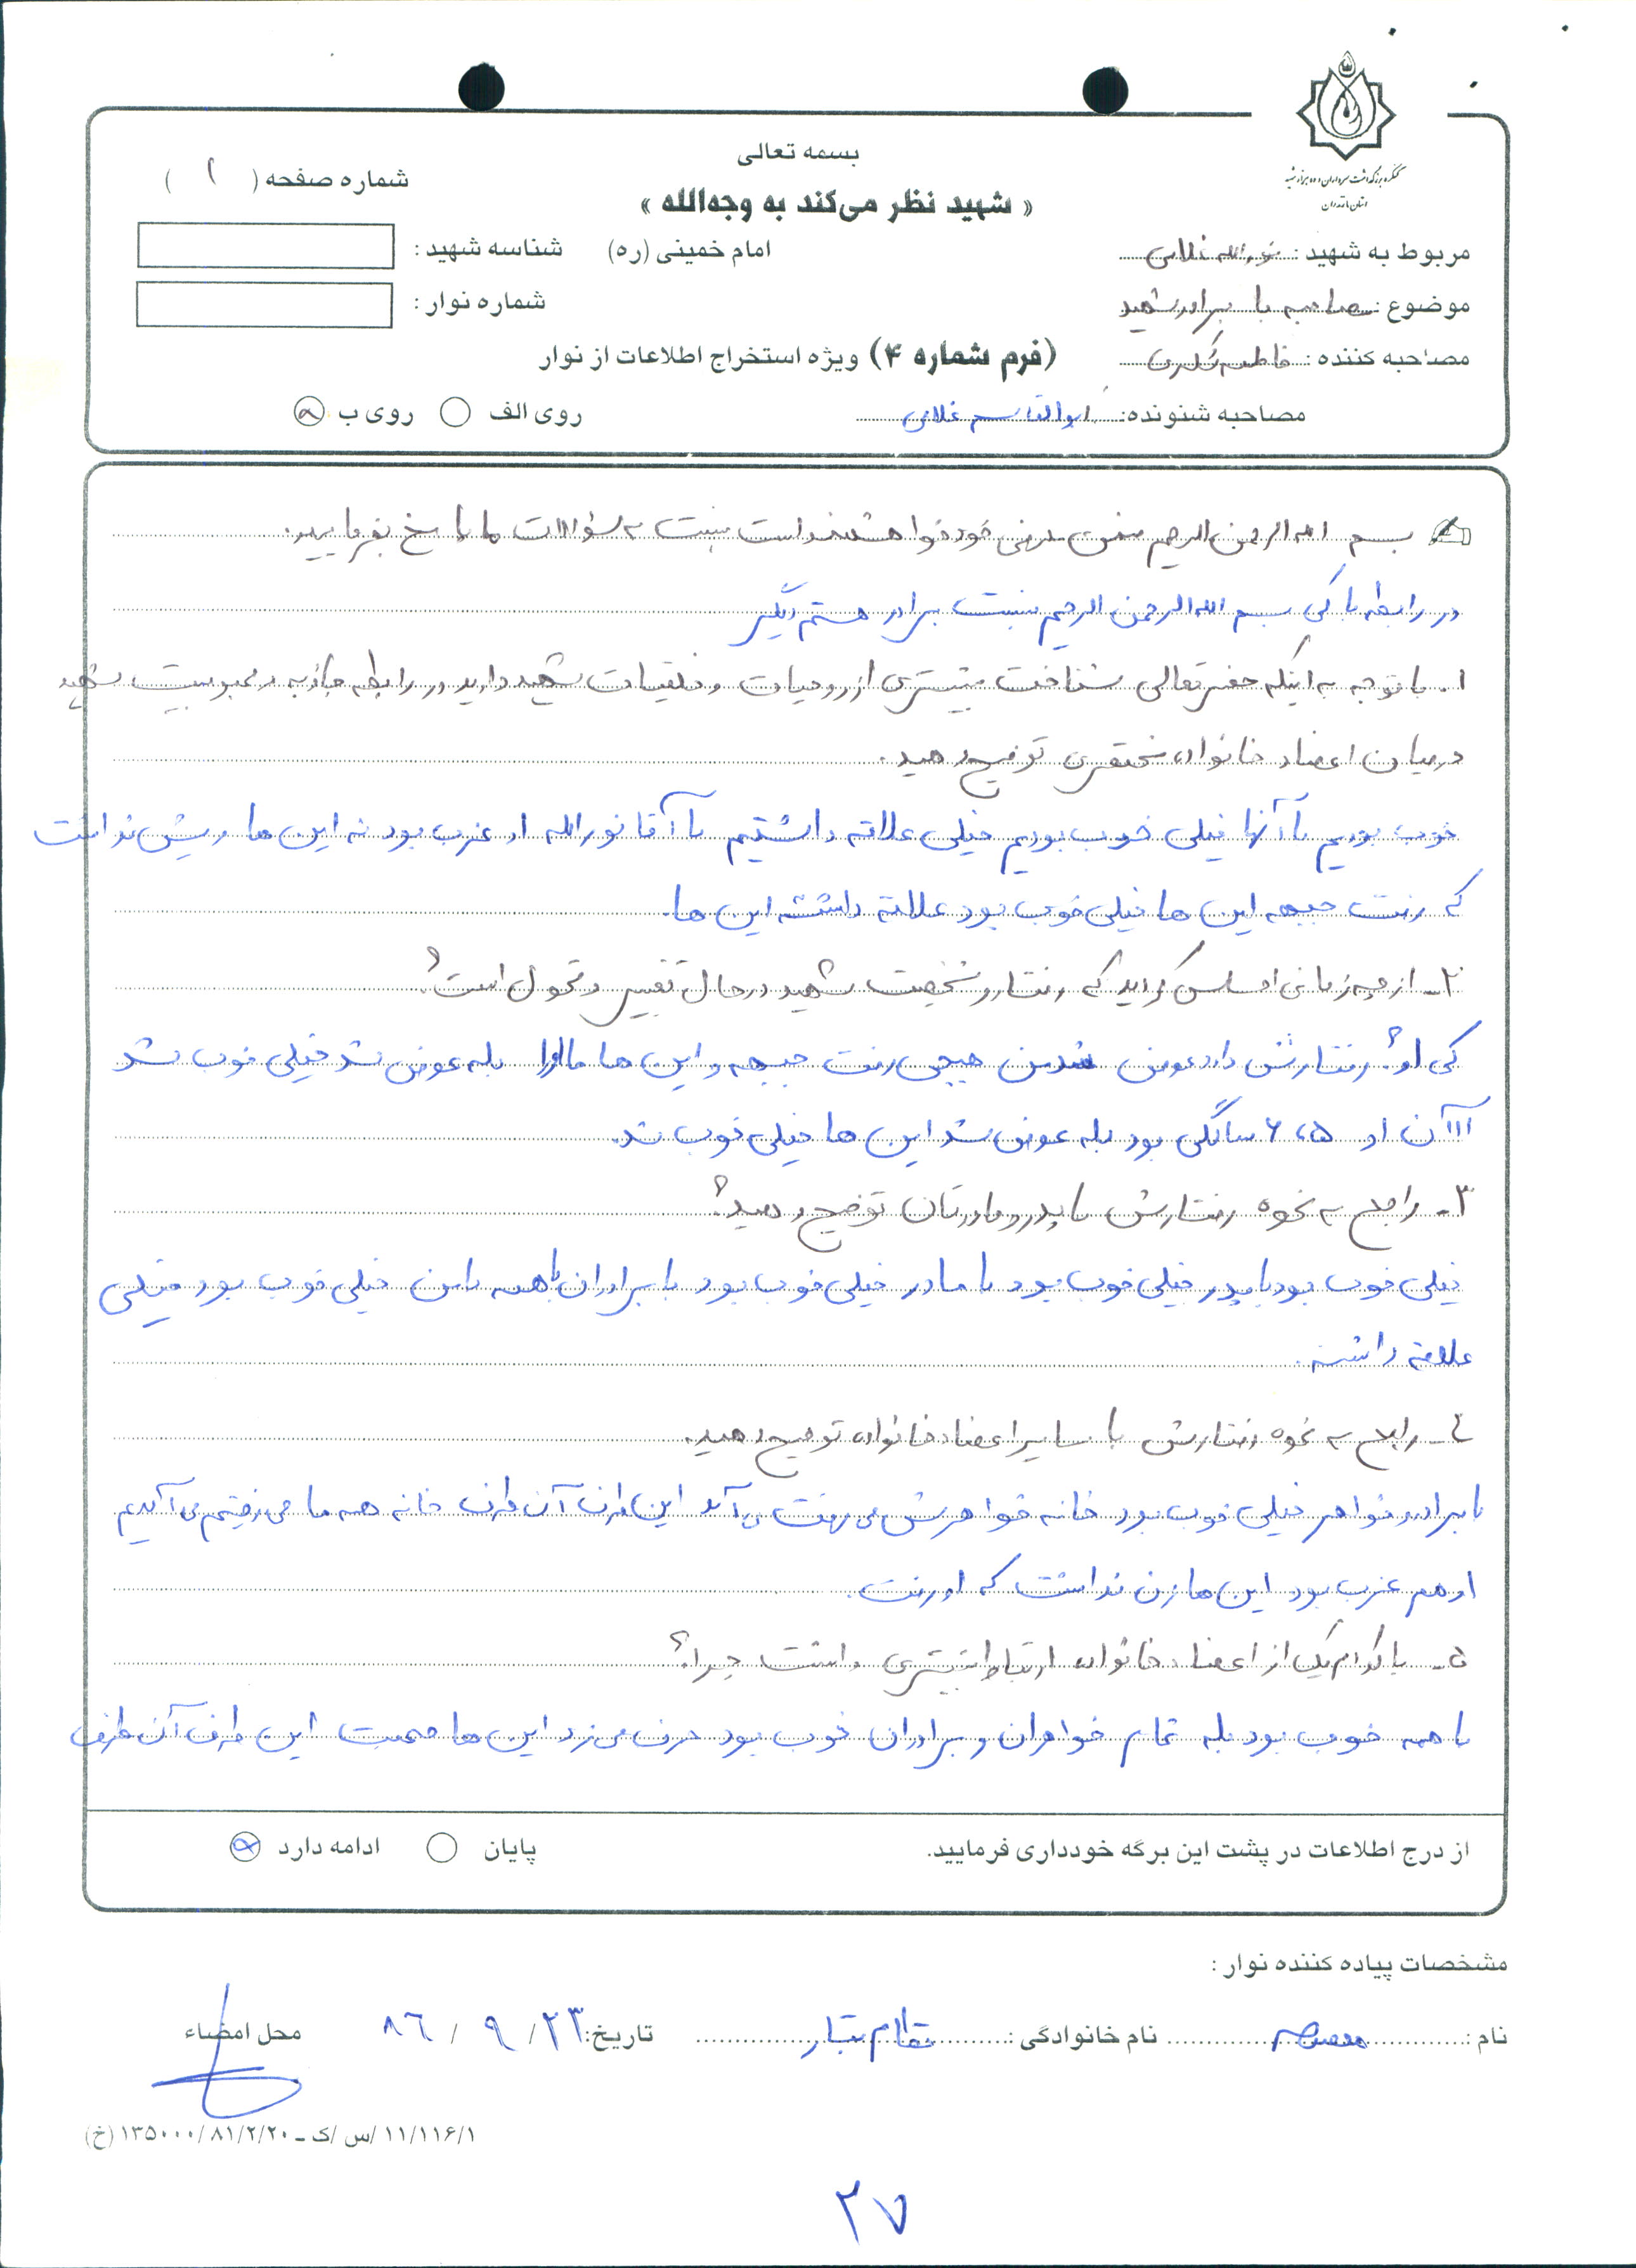 بسمه تعالی
شماره صفحه ( ۱ )
« شهید نظر می‌کند به وجه‌الله »
کنگره بزرگداشت سرداران و ده هزار شهید
استان مازندران
مربوط به شهید : نورالله غلامی
امام خمینی (ره)
شناسه شهید :
موضوع : مصاحبه با برادر شهید
شماره نوار :
مصاحبه کننده : فاطمه شکری
(فرم شماره ۴) ویژه استخراج اطلاعات از نوار
مصاحبه شنونده: ابوالقاسم غلامی
روی الف روی ب
بسم الله الرحمن الرحیم ضمن معرفی خود خواهشمند است نسبت به سؤالات ما پاسخ بفرمایید.
در رابطه با کی بسم الله الرحمن الرحیم نسبت برادر هستم دیگر
۱. با توجه به اینکه حضرتعالی شناخت بیشتری از روحیات و خلقیات شهید دارید در رابطه جاذبه و محبوبیت شهید
در میان اعضاء خانواده مختصری توضیح دهید.
خوب بودیم با آنها خیلی خوب بودیم خیلی علاقه داشتیم با آقا نورالله او عزب بود نه این ها ریش نداشت
که رفت جبهه این ها خیلی خوب بود علاقه داشته این ها.
۲- از چه زمانی احساس کردید که رفتار و شخصیت شهید در حال تغییر و تحول است؟
کی او؟ رفتارش داد عوض شدن هیچی رفت جبهه و این ها ما اورا بله عوض شد خیلی خوب شد
آاآن او ۵، ۶ سالگی بود بله عوض شد این ها خیلی خوب شد.
۳- راجع به نحوه رفتارش با پدر و مادرتان توضیح دهید؟
خیلی خوب بود با پدر خیلی خوب بود با مادر خیلی خوب بود با برادران با همه باین خیلی خوب بود خیلی
علاقه داشته.
۴- راجع به نحوه رفتارش با سایر اعضاء خانواده توضیح دهید.
با برادر و خواهر خیلی خوب بود خانه خواهرش می رفت می آمد این طرف آن طرف خانه همه ما می رفتیم می آمدیم
او هم عزب بود این ها زن نداشت که او رفت.
۵- با کدام یک از اعضاء خانواده ارتباط بیشتری داشت چرا؟
با همه خوب بود بله تمام خواهران و برادران خوب بود حرف می زد این ها صحبت این طرف آن طرف
از درج اطلاعات در پشت این برگه خودداری فرمایید.
پایان ادامه دارد
مشخصات پیاده کننده نوار :
نام : معصومه نام خانوادگی : تبار تاریخ: ۲۳ / ۹ / ۸۶ محل امضاء
۱۱/۱۱۶/۱ /س /ک ـ ۱۳۵۰۰۰/۸۱/۲/۲۰ (خ)
۲۷